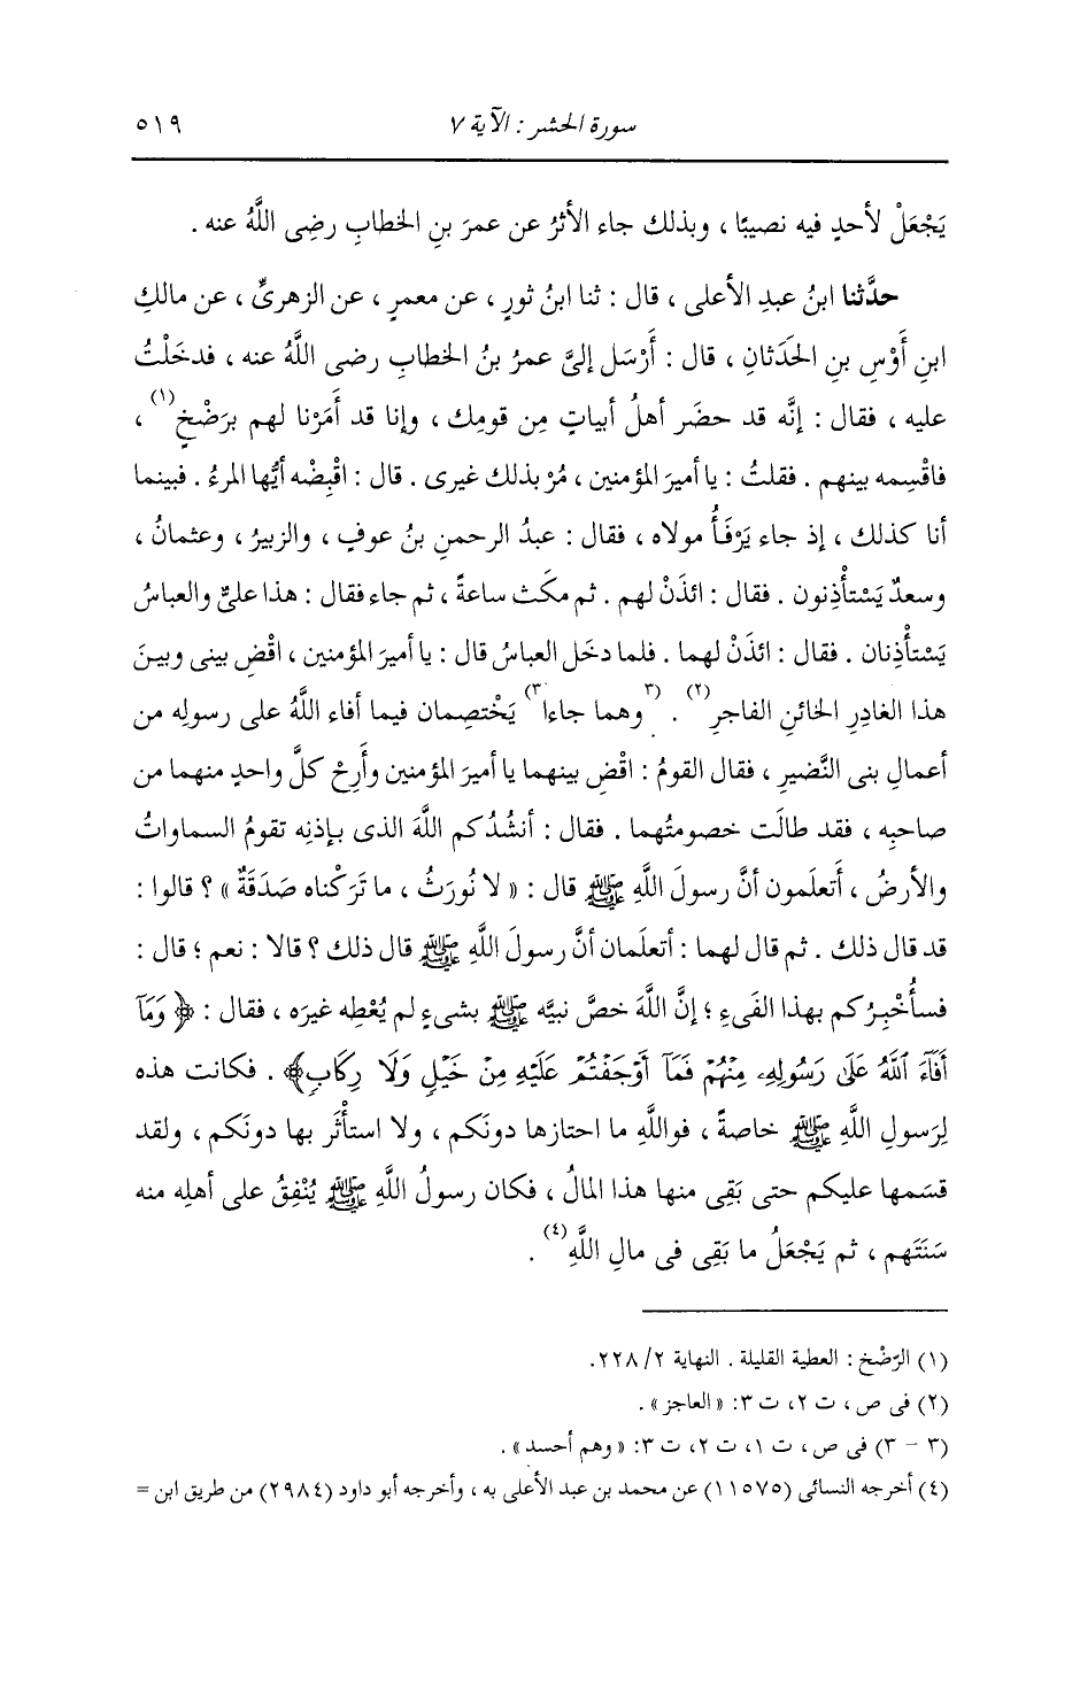 سورة الحشر : الآية ٧ ٥١٩
يَجْعَلْ لأحدٍ فيه نصيبًا ، وبذلك جاء الأثرُ عن عمرَ بنِ الخطابِ رضِى اللَّهُ عنه .
حدَّثنا ابنُ عبدِ الأعلى ، قال : ثنا ابنُ ثورٍ ، عن معمرٍ ، عن الزهرىِّ ، عن مالكِ
ابنِ أَوْسِ بنِ الحَدَثانِ ، قال : أَرْسَل إلىَّ عمرُ بنُ الخطابِ رضى اللَّهُ عنه ، فدخَلْتُ
عليه ، فقال : إنَّه قد حضَر أهلُ أبياتٍ مِن قومِك ، وإنا قد أَمَرْنا لهم برَضْخٍ(١) ،
فاقْسِمه بينهم . فقلتُ : يا أميرَ المؤمنين ، مُرْ بذلك غيرى . قال : اقْبِضْه أيُّها المرءُ . فبينما
أنا كذلك ، إذ جاء يَرْفَأُ مولاه ، فقال : عبدُ الرحمنِ بنُ عوفٍ ، والزبيرُ ، وعثمانُ ،
وسعدٌ يَسْتأْذِنون . فقال : ائذَنْ لهم . ثم مكَث ساعةً ، ثم جاء فقال : هذا علىٌّ والعباسُ
يَسْتأْذِنان . فقال : ائذَنْ لهما . فلما دخَل العباسُ قال : يا أميرَ المؤمنين ، اقْضِ بينى وبينَ
هذا الغادِرِ الخائنِ الفاجرِ(٢) . (٣وهما جاءا٣) يَخْتصِمان فيما أفاء اللَّهُ على رسولِه من
أعمالِ بنى النَّضيرِ ، فقال القومُ : اقْضِ بينهما يا أميرَ المؤمنين وأَرِحْ كلَّ واحدٍ منهما من
صاحبِه ، فقد طالَت خصومتُهما . فقال : أنشُدُكم اللَّهَ الذى بإذنِه تقومُ السماواتُ
والأرضُ ، أَتعلَمون أنَّ رسولَ اللَّهِ ﷺ قال : « لا نُورَثُ ، ما تَرَكْناه صَدَقَةٌ » ؟ قالوا :
قد قال ذلك . ثم قال لهما : أتعلَمان أنَّ رسولَ اللَّهِ ﷺ قال ذلك ؟ قالا : نعم ؛ قال :
فسأُخْبِرُكم بهذا الفَىءِ ؛ إنَّ اللَّهَ خصَّ نبيَّه ﷺ بشىءٍ لم يُعْطِه غيرَه ، فقال : ﴿ وَمَآ
أَفَآءَ ٱللَّهُ عَلَىٰ رَسُولِهِۦ مِنْهُمْ فَمَآ أَوْجَفْتُمْ عَلَيْهِ مِنْ خَيْلٍ وَلَا رِكَابٍ﴾ . فكانت هذه
لِرَسولِ اللَّهِ ﷺ خاصةً ، فواللَّهِ ما احتازها دونَكم ، ولا استأْثَر بها دونَكم ، ولقد
قسَمها عليكم حتى بَقِى منها هذا المالُ ، فكان رسولُ اللَّهِ ﷺ يُنْفِقُ على أهلِه منه
سَنَتَهم ، ثم يَجْعَلُ ما بَقِى فى مالِ اللَّهِ(٤) .
(١) الرّضْخ : العطية القليلة . النهاية ٢/ ٢٢٨.
(٢) فى ص ، ت ٢، ت ٣: « العاجز » .
(٣ - ٣) فى ص ، ت ١، ت ٢، ت ٣: « وهم أحسد » .
(٤) أخرجه النسائى (١١٥٧٥) عن محمد بن عبد الأعلى به ، وأخرجه أبو داود (٢٩٨٤) من طريق ابن =